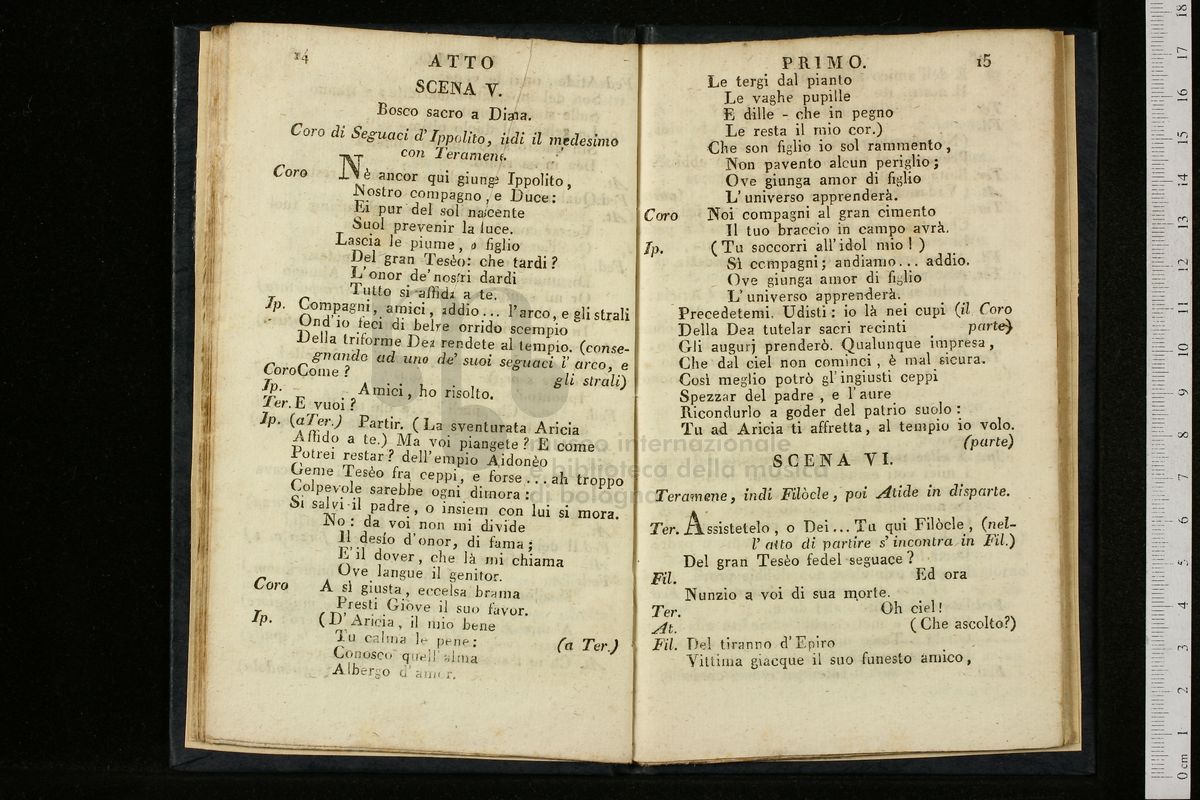 14
ATTO
SCENA V.
Bosco sacro a Diana.
Coro di Seguaci d'Ippolito, indi il medesimo
con Teramene.
Coro Nè ancor qui giunge Ippolito,
Nostro compagno, e Duce:
Ei pur del sol nascente
Suol prevenir la luce.
Lascia le piume, o figlio
Del gran Tesèo: che tardi?
L'onor de'nostri dardi
Tutto si affida a te.
Ip. Compagni, amici, addio... l'arco, e gli strali
Ond'io feci di belve orrido scempio
Della triforme Dea rendete al tempio. (conse-
gnando ad uno de' suoi seguaci l' arco, e
gli strali)
Coro Come?
Ip. Amici, ho risolto.
Ter. E vuoi?
Ip. (a Ter.) Partir. (La sventurata Aricia
Affido a te.) Ma voi piangete? E come
Potrei restar? dell'empio Aidonèo
Geme Tesèo fra ceppi, e forse... ah troppo
Colpevole sarebbe ogni dimora:
Si salvi il padre, o insiem con lui si mora.
No: da voi non mi divide
Il desío d'onor, di fama;
E'il dover, che là mi chiama
Ove langue il genitor.
Coro A sì giusta, eccelsa brama
Presti Giove il suo favor.
Ip. (D'Aricia, il mio bene
Tu calma le pene: (a Ter.)
Conosco quell'alma
Albergo d'amor.
PRIMO. 15
Le tergi dal pianto
Le vaghe pupille
E dille - che in pegno
Le resta il mio cor.)
Che son figlio io sol rammento,
Non pavento alcun periglio;
Ove giunga amor di figlio
L'universo apprenderà.
Coro Noi compagni al gran cimento
Il tuo braccio in campo avrà.
Ip. (Tu soccorri all'idol mio!)
Sì compagni; andiamo... addio.
Ove giunga amor di figlio
L'universo apprenderà.
Precedetemi. Udisti: io là nei cupi (il Coro
Della Dea tutelar sacri recinti parte)
Gli augurj prenderò. Qualunque impresa,
Che dal ciel non cominci, è mal sicura.
Così meglio potrò gl'ingiusti ceppi
Spezzar del padre, e l'aure
Ricondurlo a goder del patrio suolo:
Tu ad Aricia ti affretta, al tempio io volo.
(parte)
SCENA VI.
Teramene, indi Filòcle, poi Atide in disparte.
Ter. Assistetelo, o Dei... Tu qui Filòcle, (nel-
l' atto di partire s'incontra in Fil.)
Del gran Tesèo fedel seguace?
Fil. Ed ora
Nunzio a voi di sua morte.
Ter. Oh ciel!
At. (Che ascolto?)
Fil. Del tiranno d'Epiro
Vittima giacque il suo funesto amico,
museo internazionale
e biblioteca della musica
di bologna
0 cm 1 2 3 4 5 6 7 8 9 10 11 12 13 14 15 16 17 18